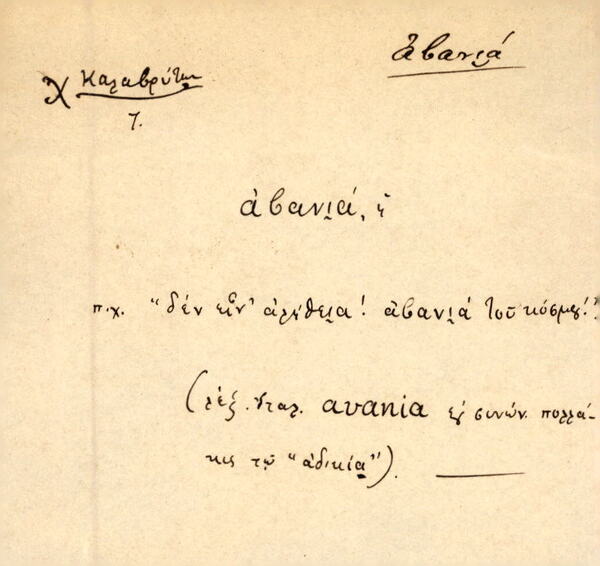 Ἀβανι̯ά
χ Καλαβρύτων
7.
ἀβανι̯ά, ἡ
π.χ. "δέν εἶν' ἀλήθει̯α! ἀβανι̯ά τοῦ κόσμου!"
(λέξ. ἰταλ. avania ἐν συνων. πολλά-
κις τῷ "ἀδικία").